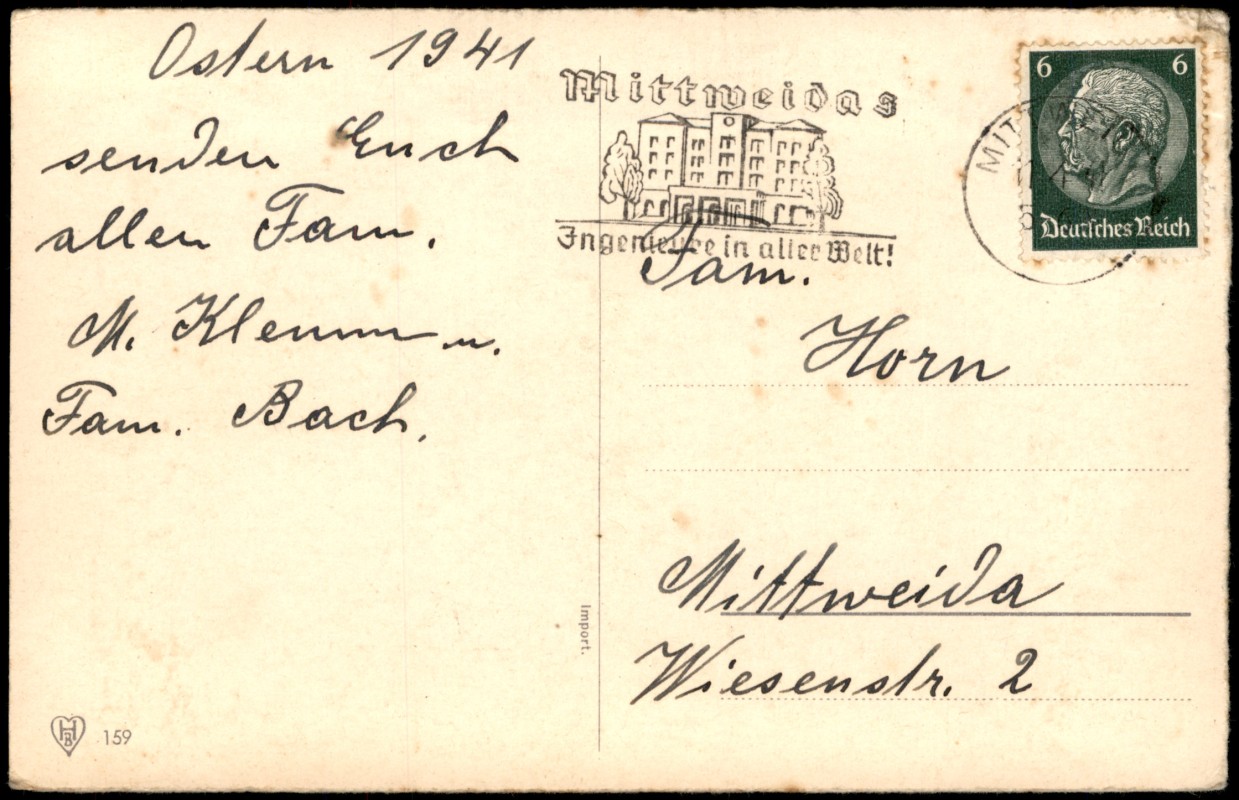 Ostern 1941
senden Euch
allen Fam.
M. Klemm u.
Fam. Bach.
Mittweidas
Ingenieure in aller Welt!
6 6
Deutsches Reich
Fam.
Horn
Mittweida
Wiesenstr. 2
Import.
HB
159